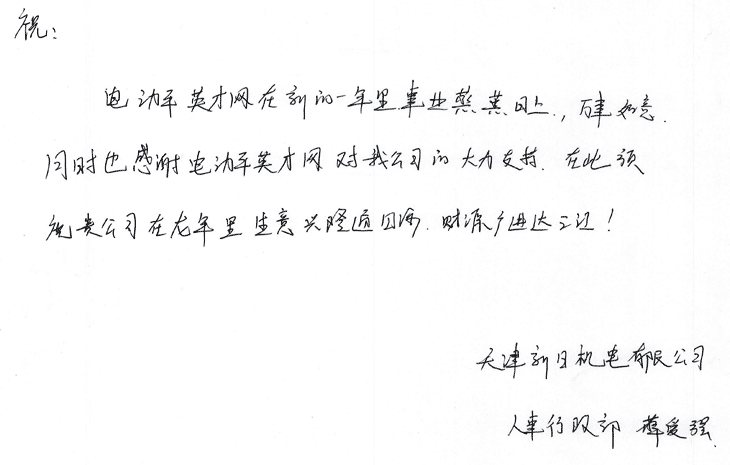 祝：
电动车英才网在新的一年里事业蒸蒸日上，万事如意.
同时也感谢电动车英才网对我公司的大力支持.在此预
祝贵公司在龙年里生意兴隆通四海.财源广进达三江！
天津新日机电有限公司
人事行政部 薛爱强